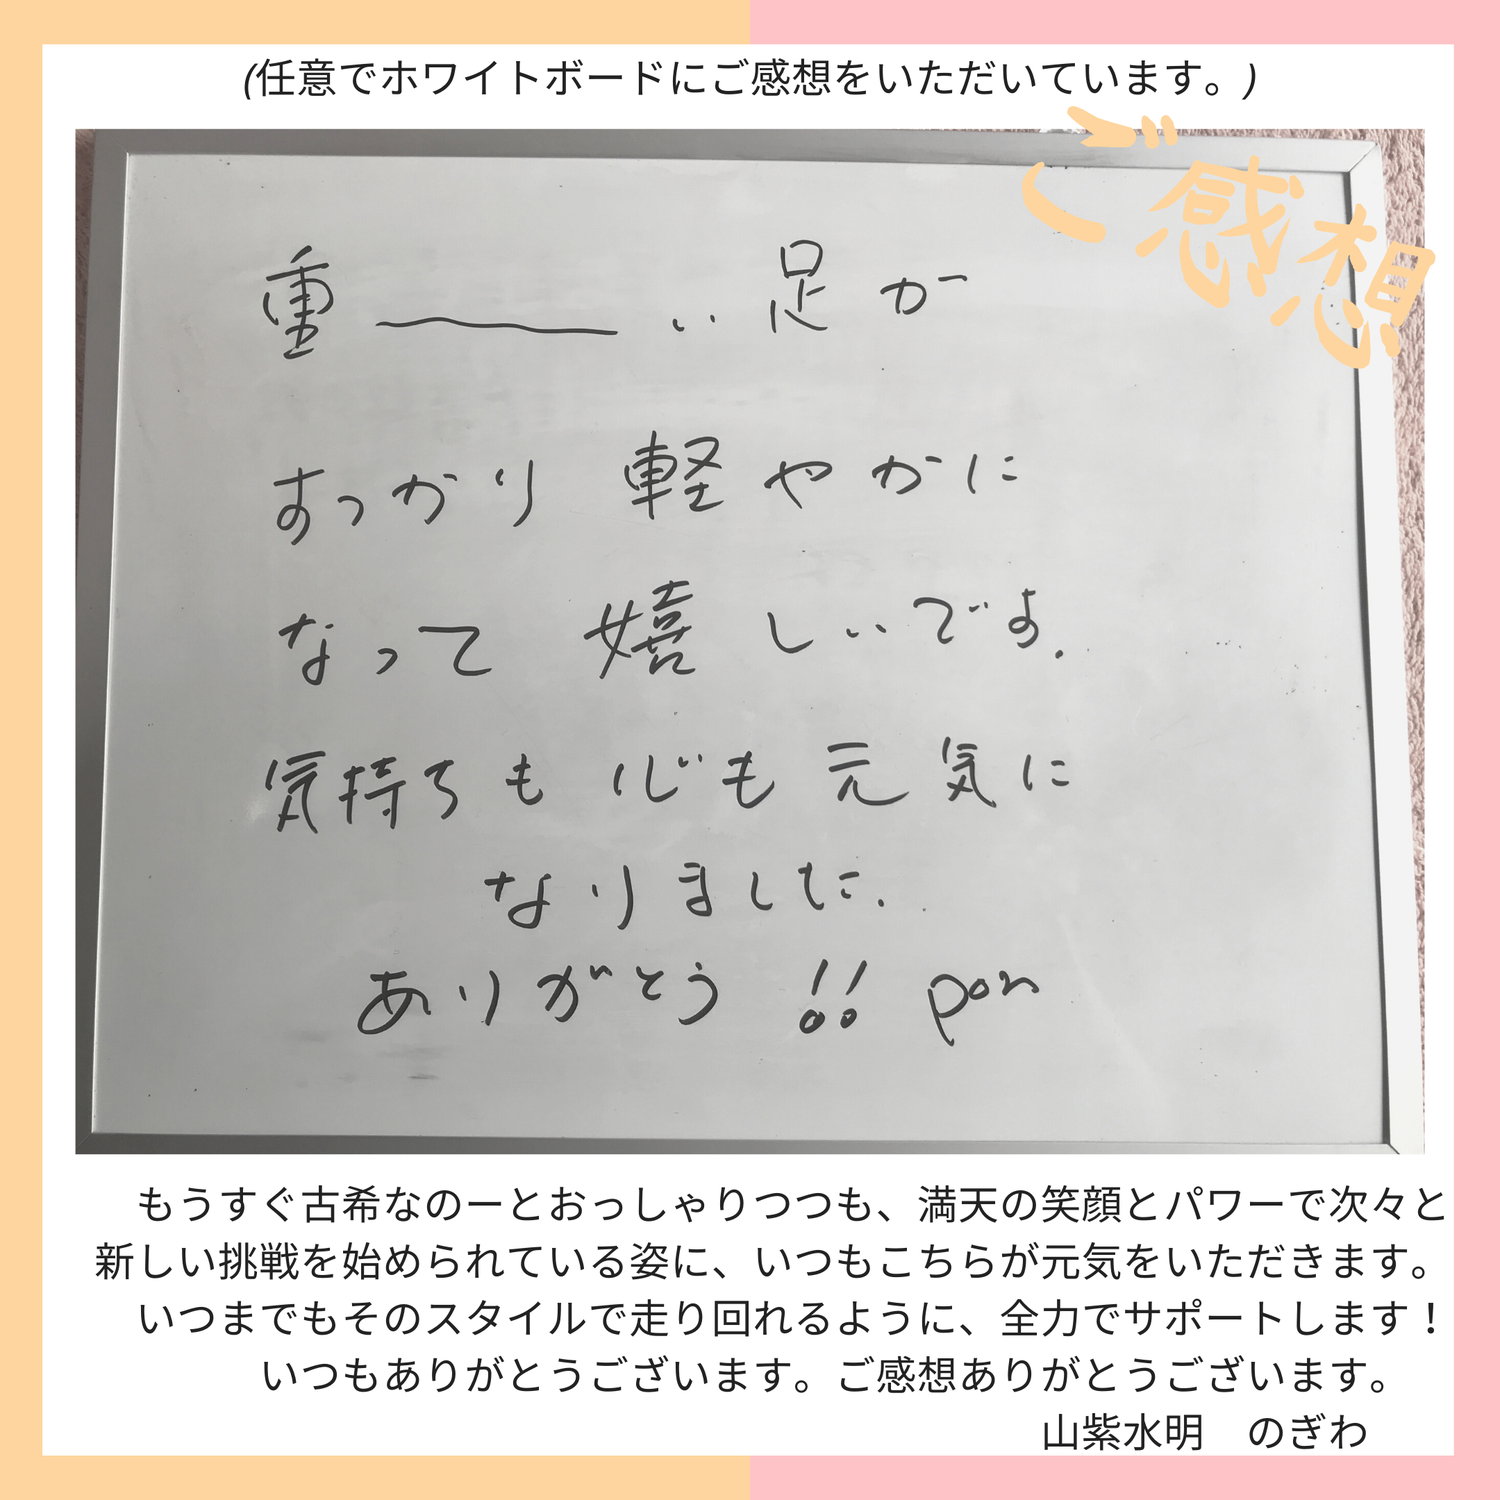 (任意でホワイトボードにご感想をいただいています。)
ご感想
重〜〜い足が
すっかり 軽やかに
なって 嬉しいです.
気持ちも心も元気に
なりました.
ありがとう!! pon
もうすぐ古希なのーとおっしゃりつつも、満天の笑顔とパワーで次々と
新しい挑戦を始められている姿に、いつもこちらが元気をいただきます。
いつまでもそのスタイルで走り回れるように、全力でサポートします！
いつもありがとうございます。ご感想ありがとうございます。
山紫水明　のぎわ